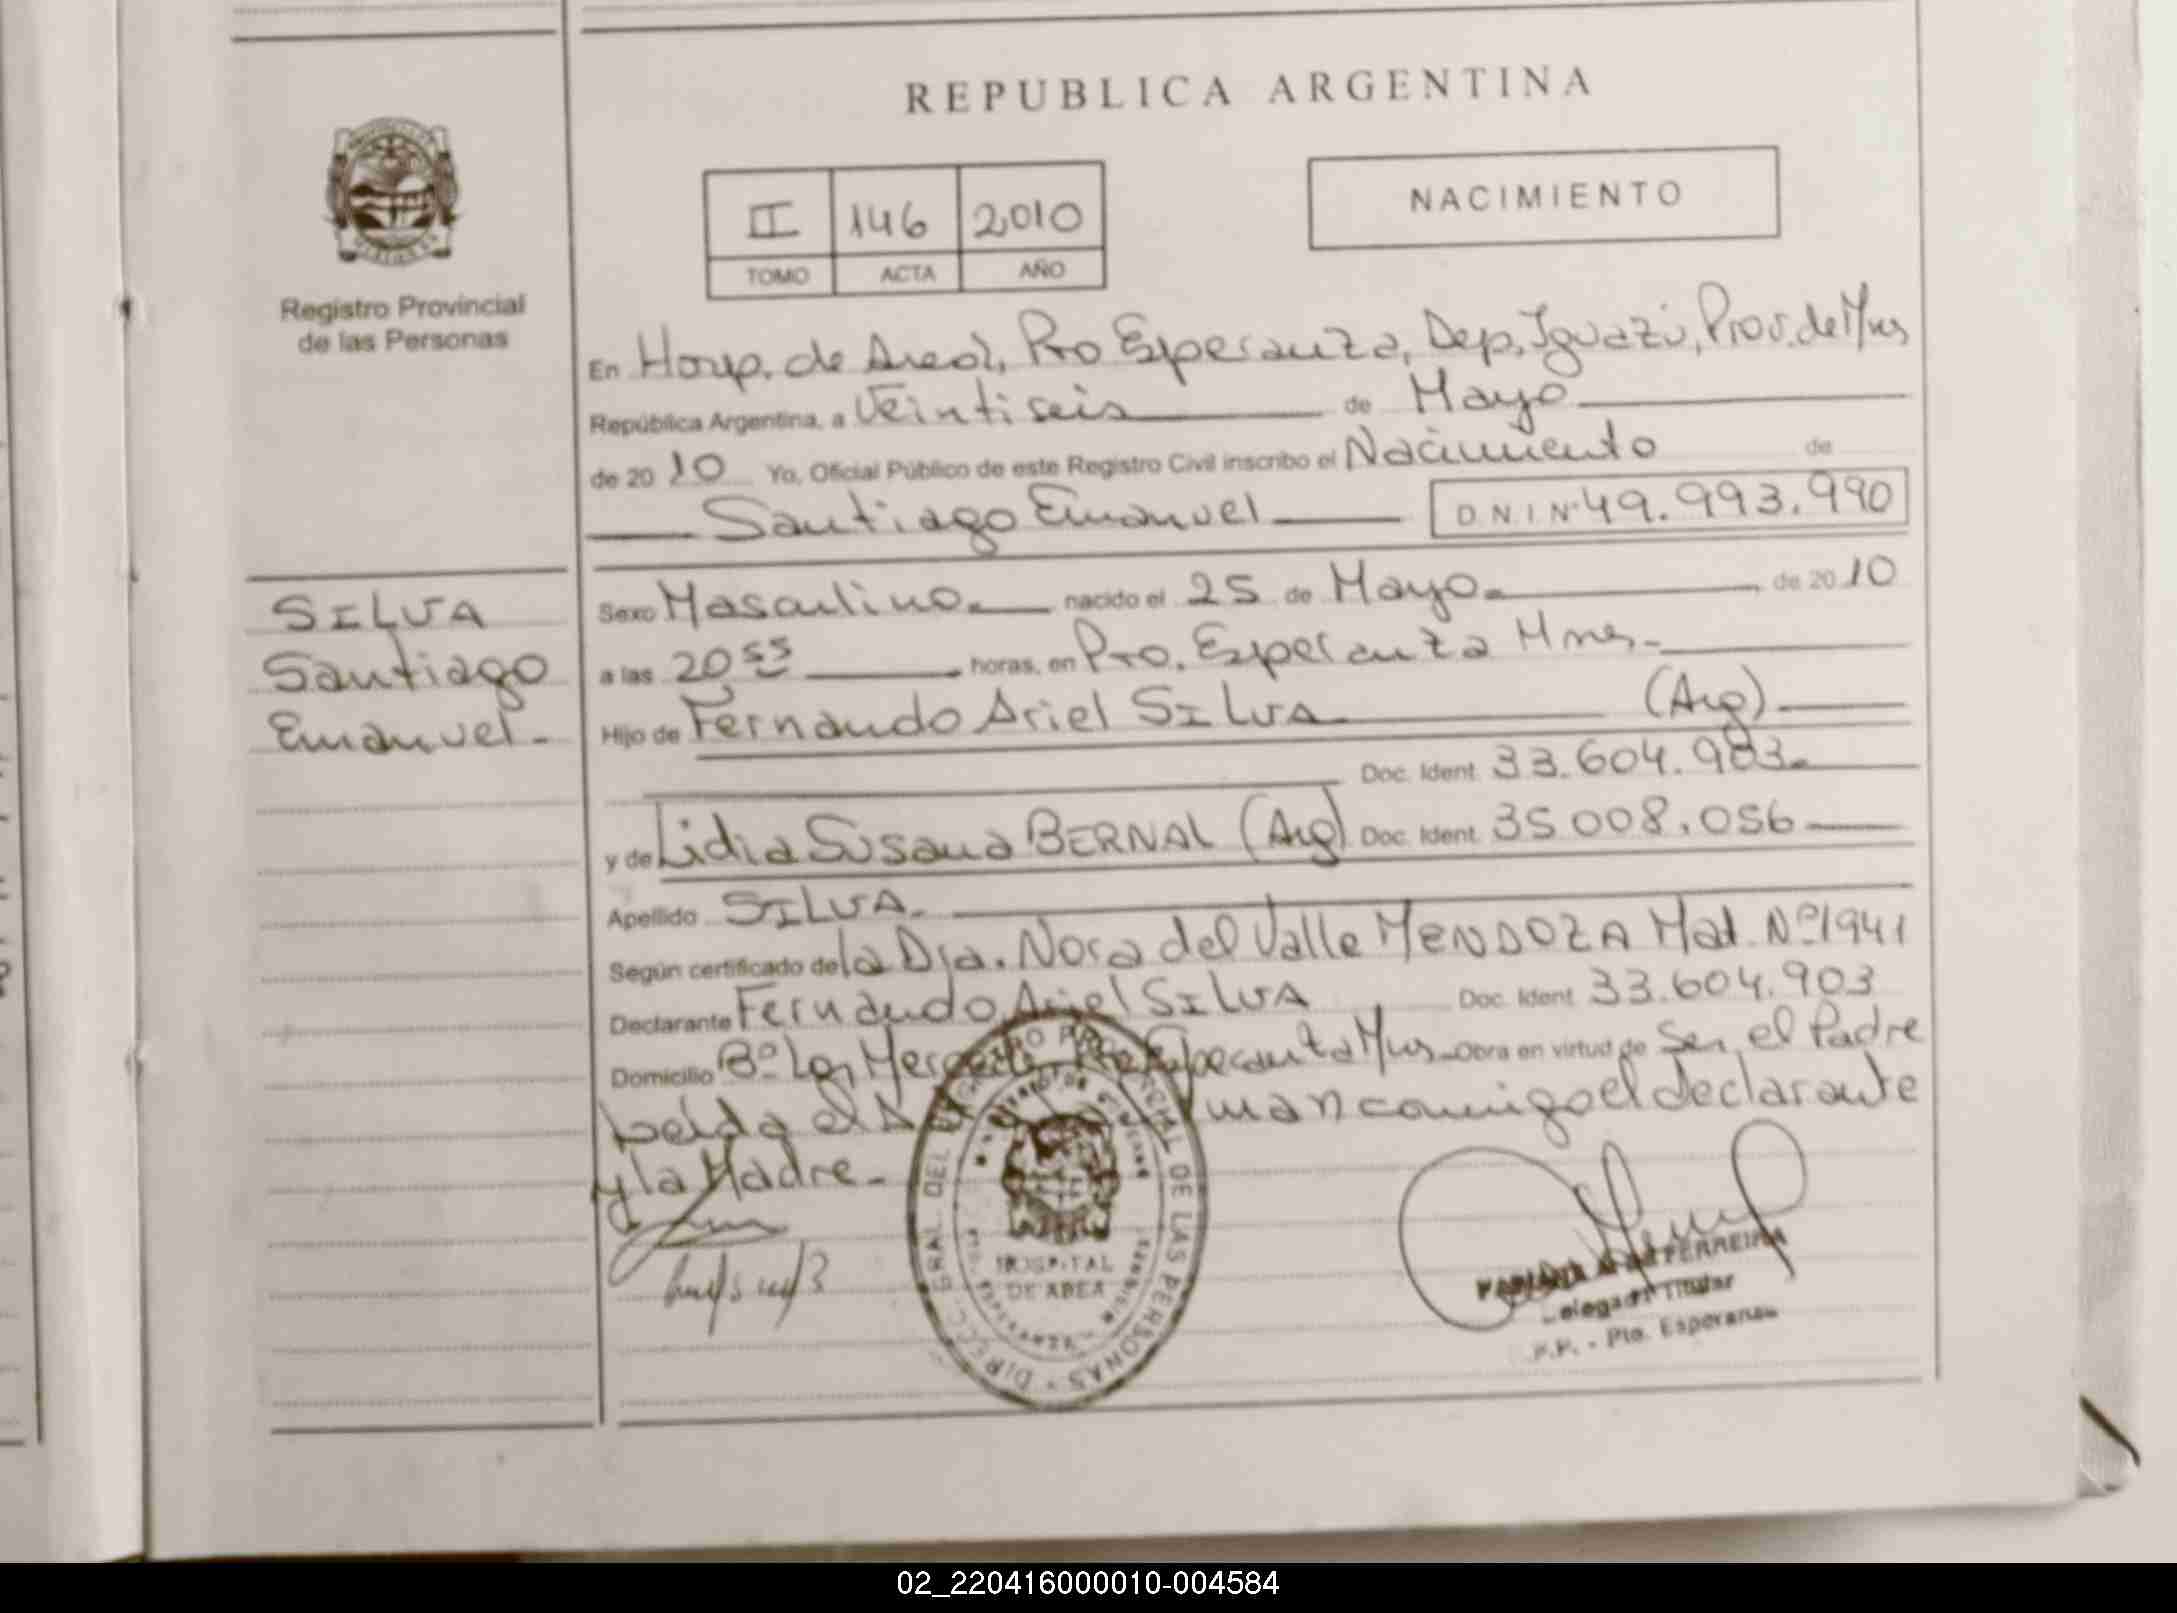 REPUBLICA ARGENTINA
II 146 2010
TOMO ACTA AÑO
NACIMIENTO
Registro Provincial
de las Personas
SILVA
Santiago
Emanuel -
En Hosp. de Area, Pto Esperanza, Dep. Iguazú, Prov. de Mnes
República Argentina, a Veintiseis de Mayo
de 2010 Yo, Oficial Público de este Registro Civil inscribo el Nacimiento de
Santiago Emanuel D N I Nº 49.993.990
Sexo Masculino. nacido el 25 de Mayo. de 2010
a las 20 55 horas, en Pto. Esperanza Mnes -
Hijo de Fernando Ariel SILVA (Arg)
Doc. Ident. 33.604.903.
y de Lidia Susana BERNAL (Arg) Doc. Ident. 35.008.056
Apellido SILVA.
Según certificado de la Dra. Nora del Valle MENDOZA Mat. Nº 1941
Declarante Fernando Ariel SILVA Doc. Ident 33.604.903
Domicilio Bº Las Esperanza Mnes - Obra en virtud de Ser el Padre
Leida el conmigo el declarante
y la Madre -
DIRECC. GRAL. DEL REGISTRO PROVINCIAL DE LAS PERSONAS
HOSPITAL
DE AREA
FERREIRA
Delegada Titular
R.P. - Pto. Esperanza
02_220416000010-004584